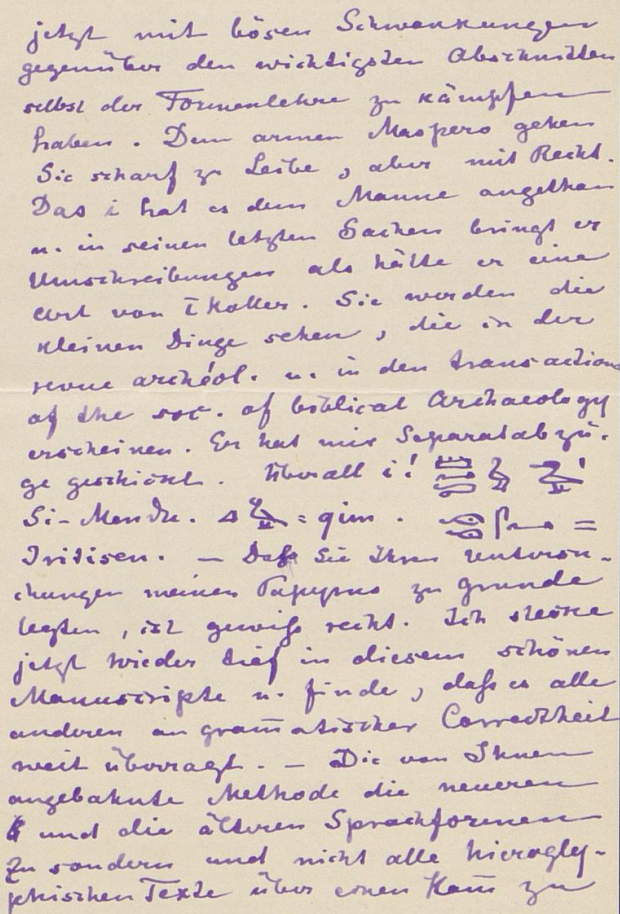 jetzt mit bösen Schwankungen
gegenüber den wichtigsten Abschnitten
selbst der Formenlehre zu kämpfen
haben. Dem armen Maspero gehen
Sie scharf zu Leibe, aber mit Recht.
Das i hat es dem Manne angethan
u. in seinen letzten Sachen bringt er
Umschreibungen als hätte er eine
Art von I Koller. Sie werden die
kleinen Dinge sehen, die in der
revue archéol. u. in den transactions
of the soc. of biblical Archaeology
erscheinen. Er hat mir Separatabzü-
ge geschickt. Überall i!
Si-Mentu. = qim. =
Iritisen. — Daß Sie Ihren Untersu-
chungen meinen Papyrus zu grunde
legten, ist gewiß recht. Ich stecke
jetzt wieder tief in diesem schönen
Manuscripte u. finde, daß es alle
anderen an gram̄atischer Correctheit
weit überragt. — Die von Ihnen
angebahnte Methode die neueren
und die älteren Sprachformen
zu sondern und nicht alle hierogly-
phischen Texte über einen Kam̄ zu